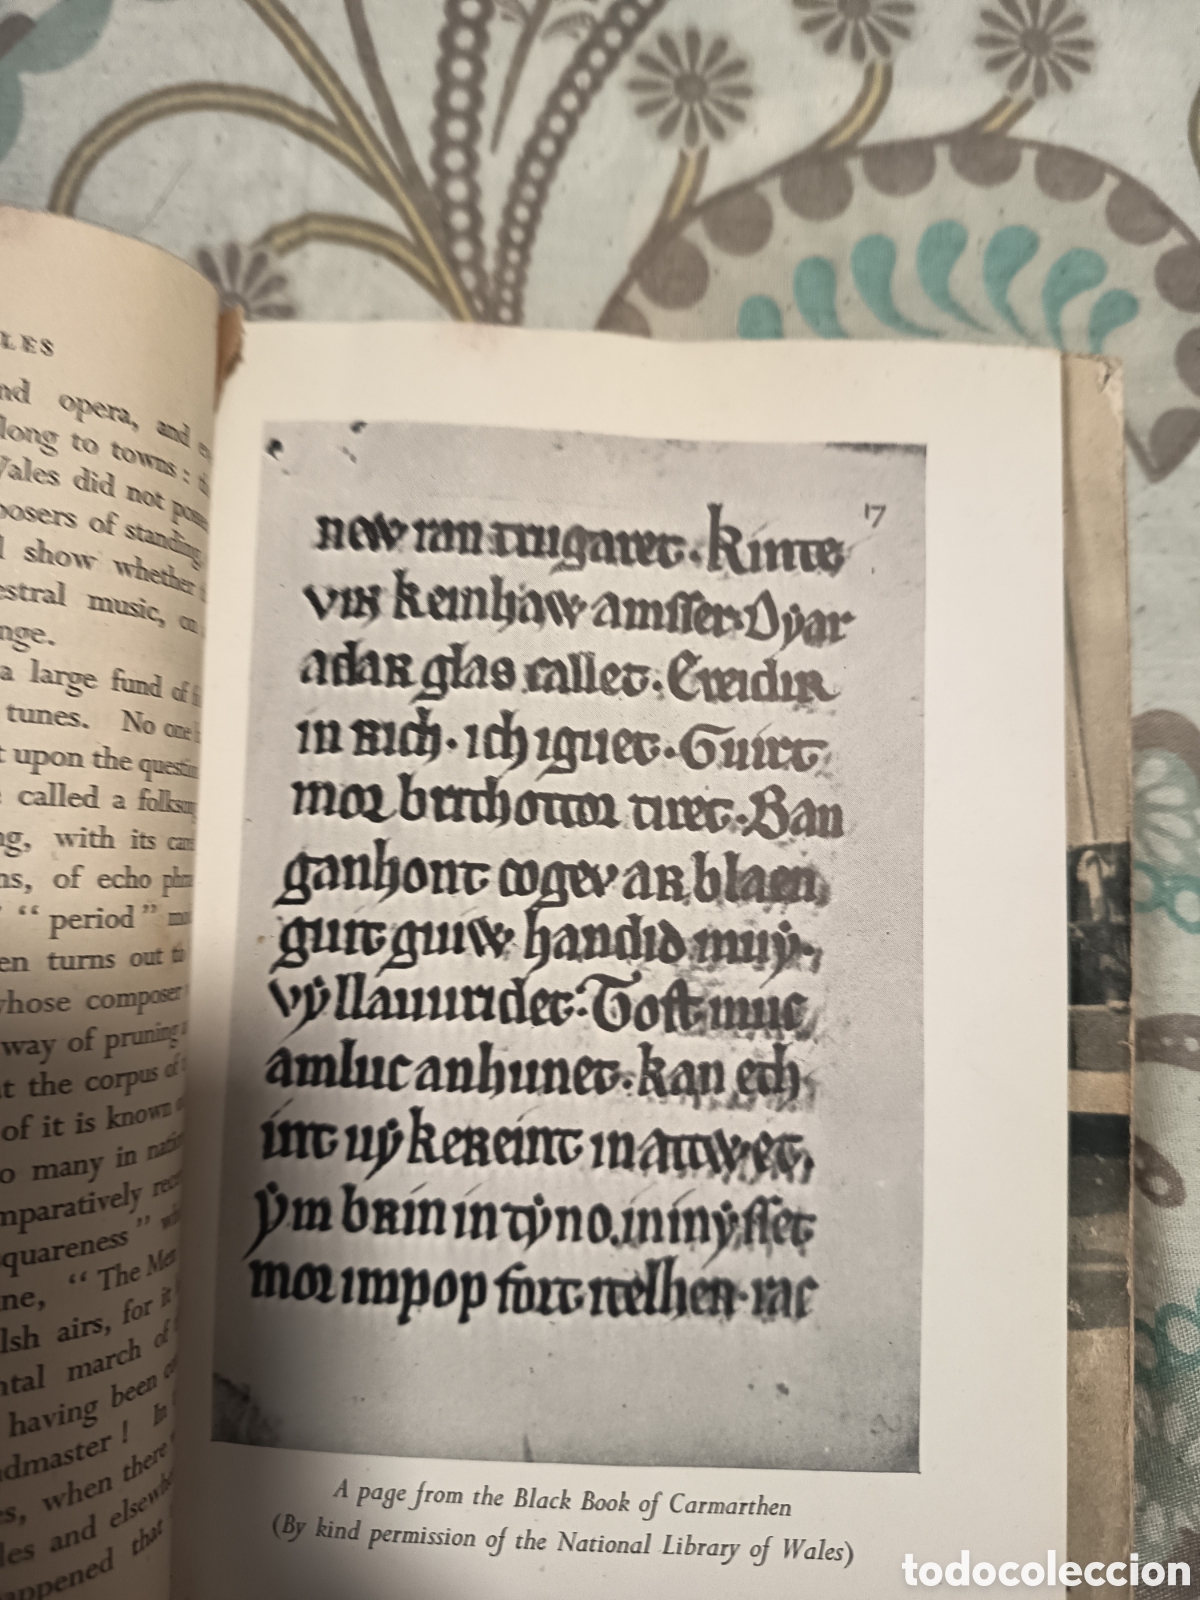 LES
nd opera, and
long to towns:
Wales did not
posers of standing
l show whether
estral music, on
nge.
a large fund of
tunes. No one
t upon the
called a
ng, with its
ns, of echo
" "period"
en turns out
whose composer
way of pruning
t the corpus of
of it is known
o many in
mparatively
squareness"
ne, "The Men
lsh airs, for it
ntal march of
having been
dmaster! In
s, when there
les and
appened that
17
new ran trugaret. kinte
vin keinhaw amsser. Dyar
adar glas callet. Ereidir
in rich. ich iguet. Guirt
mor brithottor tiret. Ban
ganhont cogev ar blaen
guit guiw handid muy.
vy llauuridet. Tost muc
amluc anhunet. kan ech
int uy kereint in attwet,
ym brin in tyno. in inysset
mor impop fort itelher. rac
A page from the Black Book of Carmarthen
(By kind permission of the National Library of Wales)
todocoleccion